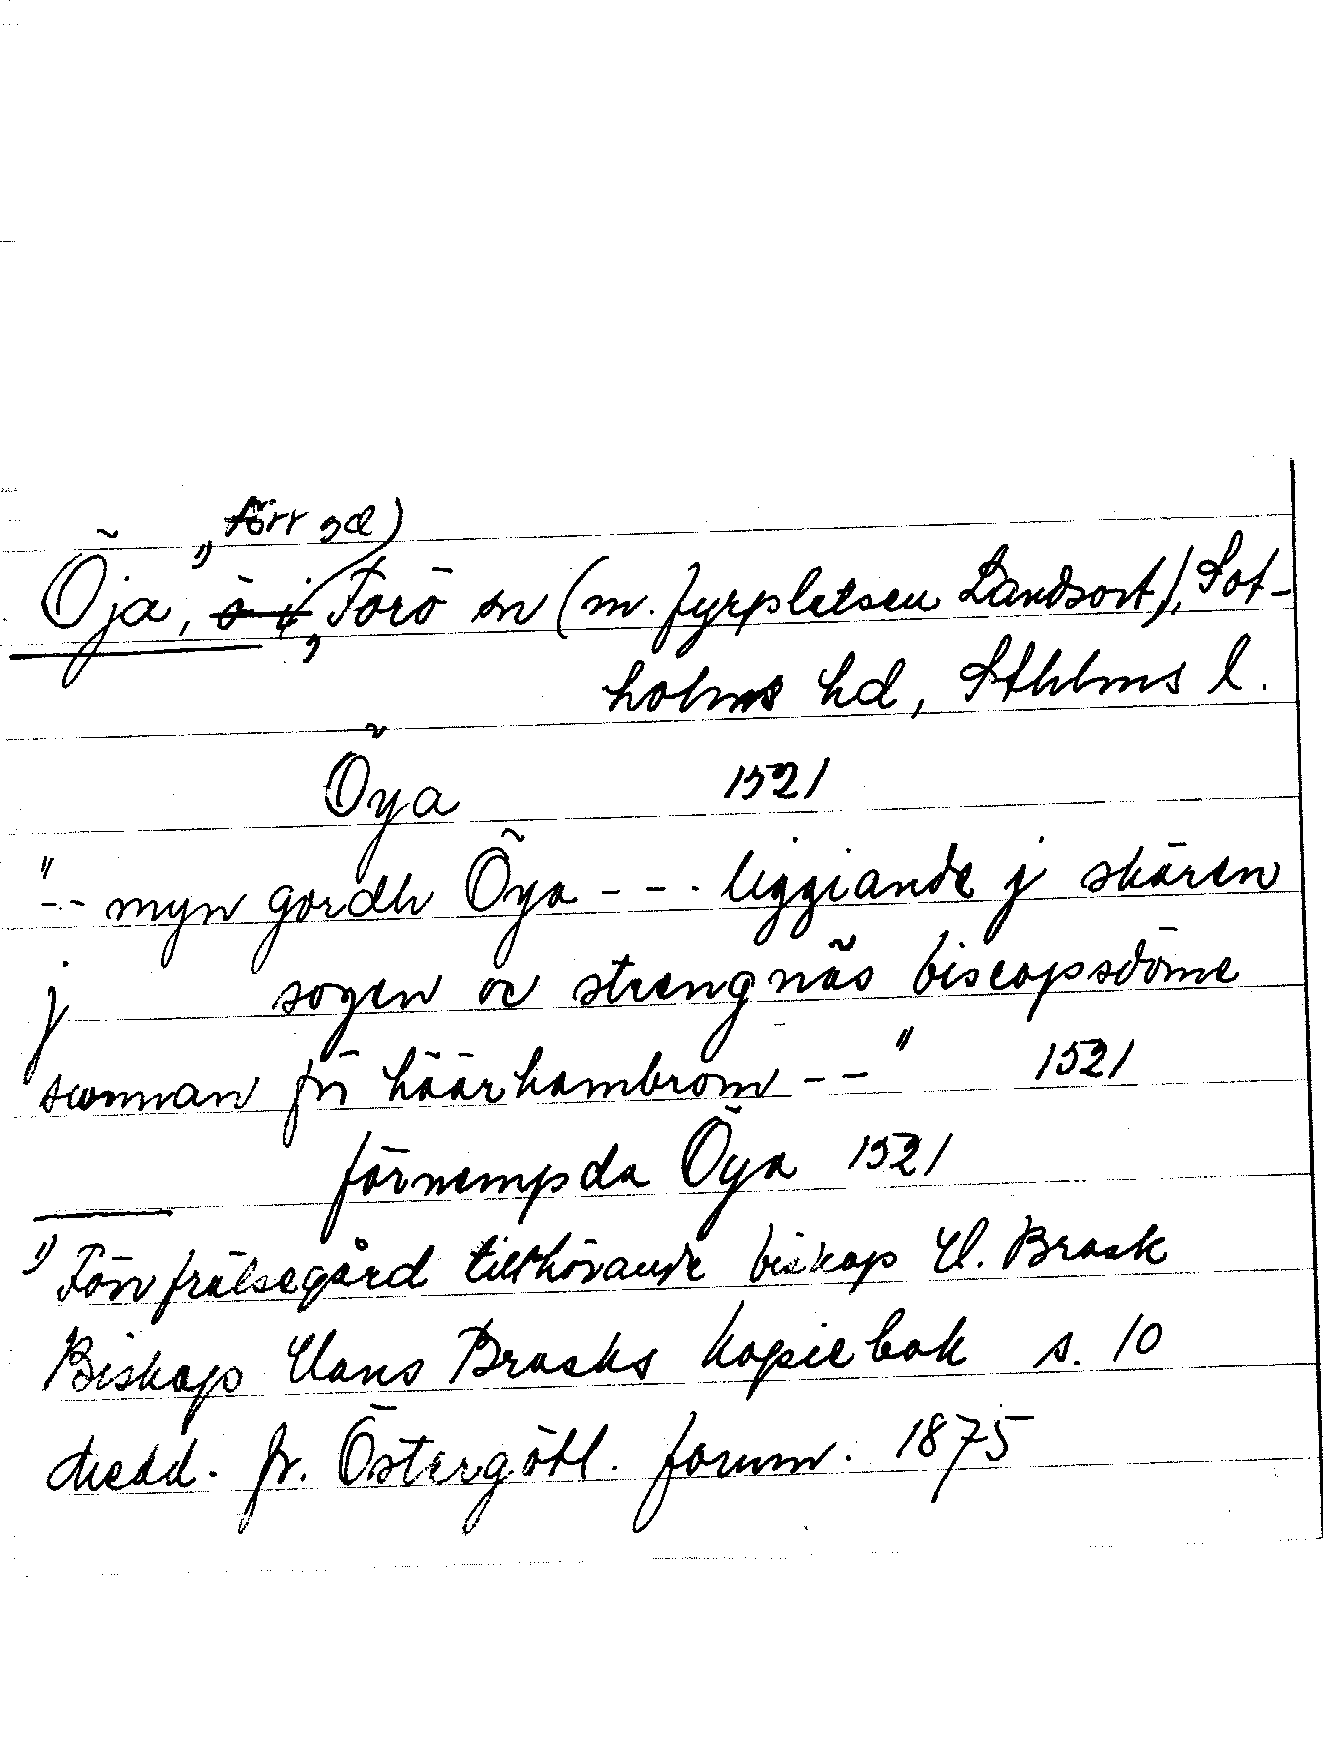 förr gd)
Öja,¹⁾ ö i, Torö sn (m. fyrplatsen Landsort), Sot-
holms hd, Sthlms l.
Öya 1521
"-- myn gordh Öya --- liggiande j skären
j sogen oc strengnäs biscopsdöme
swnnan för häärhambrom -- " 1521
förnempda Öya 1521
¹⁾ Förr frälsegård tillhörande biskop H. Brask
Biskop Hans Brasks kopiebok s. 10
Medd. fr. Östergötl. fornm. 1875